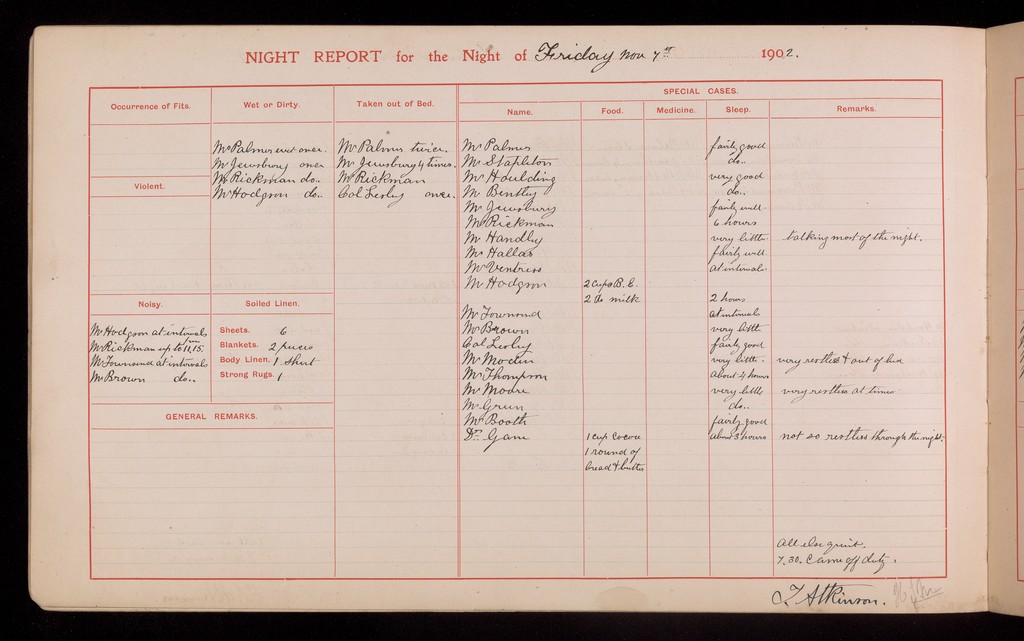 NIGHT REPORT for the Night of Friday Nov 7th 1902.
Occurrence of Fits.
Wet or Dirty.
Taken out of Bed.
SPECIAL CASES.
Name. Food. Medicine. Sleep. Remarks.
Mr Palmer wet once.
Mr Jewsbury once
Mr Rickman do..
Mr Hodgson do..
Mr Palmer twice.
Mr Jewsbury 4 times.
Mr Rickman
Col Lesley once.
Violent.
Noisy.
Mr Hodgson at intervals
Mr Rickman up to 11,15 pm
Mr Townsend at intervals
Mr Brown do..
Soiled Linen.
Sheets. 6
Blankets. 2 pieces
Body Linen. 1 Shirt
Strong Rugs. 1
GENERAL REMARKS.
Mr Palmer fairly good
Mr Stapleton do..
Mr Houlding very good
Mr Bentley do..
Mr Jewsbury fairly well
Mr Rickman 6 hours
Mr Handley very little talking most of the night.
Mr Hallas fairly well
Mr Ventriss at intervals
Mr Hodgson 2 cups B. E.
2 do milk 2 hours
Mr Townsend at intervals
Mr Brown very little
Col Lesley fairly good
Mr Modin very little. very restless & out of bed
Mr Thompson about 4 hours
Mr Moore very little very restless at times
Mr Green do..
Mr Booth fairly good
Dr. Game 1 cup cocoa about 3 hours not so restless through the night.
1 round of
bread & butter
All else quiet.
7.30. Came off duty.
T Atkinson.